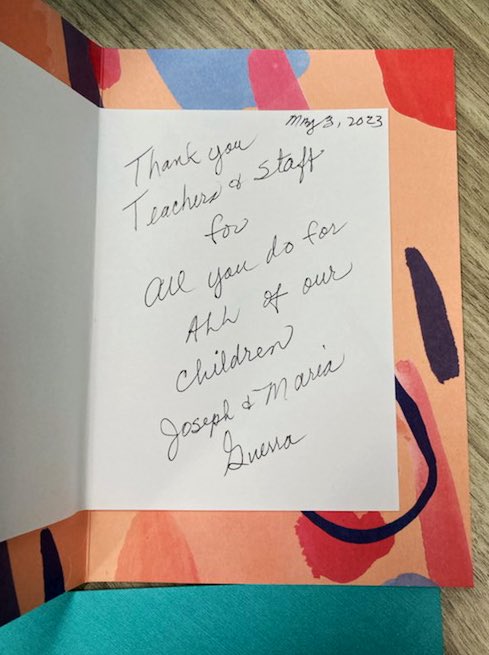 May 3, 2023
Thank you
Teachers & Staff
for
All you do for
ALL of our
children
Joseph & Maria
Guerra